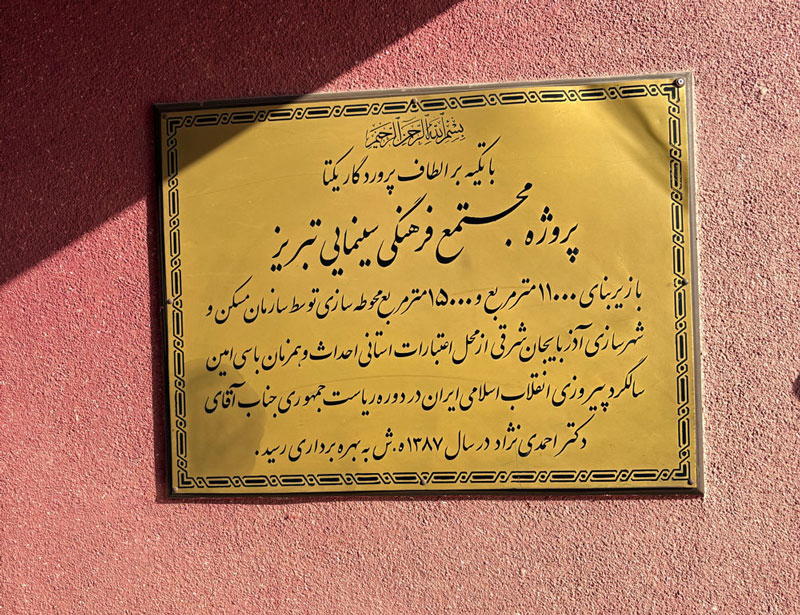 بسم الله الرحمن الرحیم
با تکیه بر الطاف پروردگار یکتا
پروژه مجتمع فرهنگی سینمایی تبریز
با زیربنای ۱۱۰۰۰ مترمربع و ۱۵۰۰۰ مترمربع محوطه سازی توسط سازمان مسکن و
شهرسازی آذربایجان شرقی از محل اعتبارات استانی احداث و همزمان با سی امین
سالگرد پیروزی انقلاب اسلامی ایران در دوره ریاست جمهوری جناب آقای
دکتر احمدی نژاد در سال ۱۳۸۷ ه.ش به بهره برداری رسید.